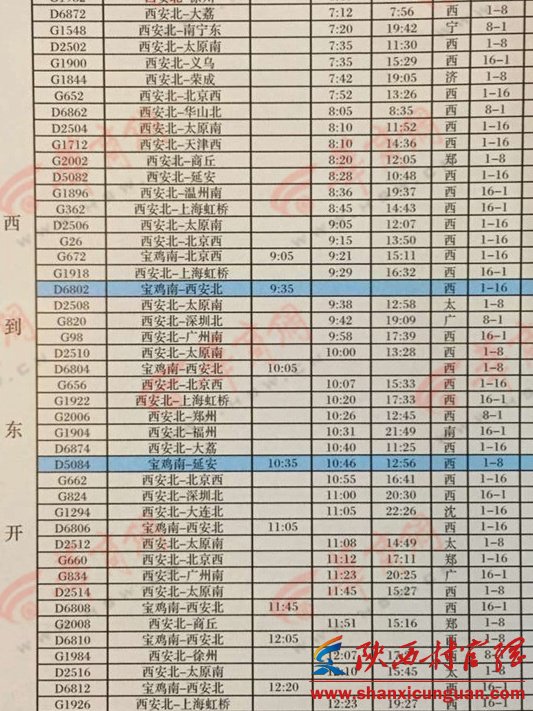 西安北-徐州
D6872 西安北-大荔 7:12 7:56 西 1-8
G1548 西安北-南宁东 7:20 19:42 宁 8-1
D2502 西安北-太原南 7:35 11:30 西 1-8
G1900 西安北-义乌 7:35 15:29 西 16-1
G1844 西安北-荣成 7:42 19:05 济 1-8
G652 西安北-北京西 7:52 13:26 西 1-16
D6862 西安北-华山北 8:05 8:35 西 8-1
D2504 西安北-太原南 8:10 11:52 西 1-16
G1712 西安北-天津西 8:10 14:36 西 1-16
G2002 西安北-商丘 8:20 12:05 郑 1-8
D5082 西安北-延安 8:28 10:48 西 1-16
G1896 西安北-温州南 8:36 19:37 西 16-1
G362 西安北-上海虹桥 8:45 14:43 西 16-1
D2506 西安北-太原南 9:05 12:07 西 1-16
G26 西安北-北京西 9:15 13:50 西 1-16
G672 宝鸡南-北京西 9:05 9:21 15:11 西 1-16
G1918 西安北-上海虹桥 9:29 16:32 西 16-1
D6802 宝鸡南-西安北 9:35 西 1-16
D2508 西安北-太原南 9:38 12:58 太 1-8
G820 西安北-深圳北 9:42 19:09 广 8-1
G98 西安北-广州南 9:58 17:39 西 16-1
D2510 西安北-太原南 10:00 13:28 西 1-8
D6804 宝鸡南-西安北 10:05 西 1-8
G656 西安北-北京西 10:07 15:33 西 1-16
G1922 西安北-上海虹桥 10:20 17:33 西 16-1
G2006 西安北-郑州 10:26 12:45 西 8-1
G1904 西安北-福州 10:31 21:49 南 16-1
D6874 西安北-大荔 10:40 11:25 西 1-16
D5084 宝鸡南-延安 10:35 10:46 12:56 西 1-8
G662 西安北-北京西 10:55 16:41 西 1-16
G824 西安北-深圳北 11:00 20:30 西 16-1
G1294 西安北-大连北 11:05 22:26 沈 1-16
D6806 宝鸡南-西安北 11:05 西 1-16
D2512 西安北-太原南 11:08 14:49 太 1-8
G660 西安北-北京西 11:12 17:11 郑 1-16
G834 西安北-广州南 11:23 20:25 广 16-1
D2514 西安北-太原南 11:45 15:27 西 1-8
D6808 宝鸡南-西安北 11:45 西 16-1
G2008 西安北-商丘 11:51 15:16 郑 1-8
D6810 宝鸡南-西安北 12:05 1-8
G1984 西安北-徐州 12:07 8-1
D2516 西安北-太原南 12:10 15:45 太 1-8
D6812 宝鸡南-西安北 12:20 西 16-1
G1926 西安北-上海虹桥 12:23 19:27 西 16-1
西
到
东
开
陕西村官网
www.shanxicunguan.com